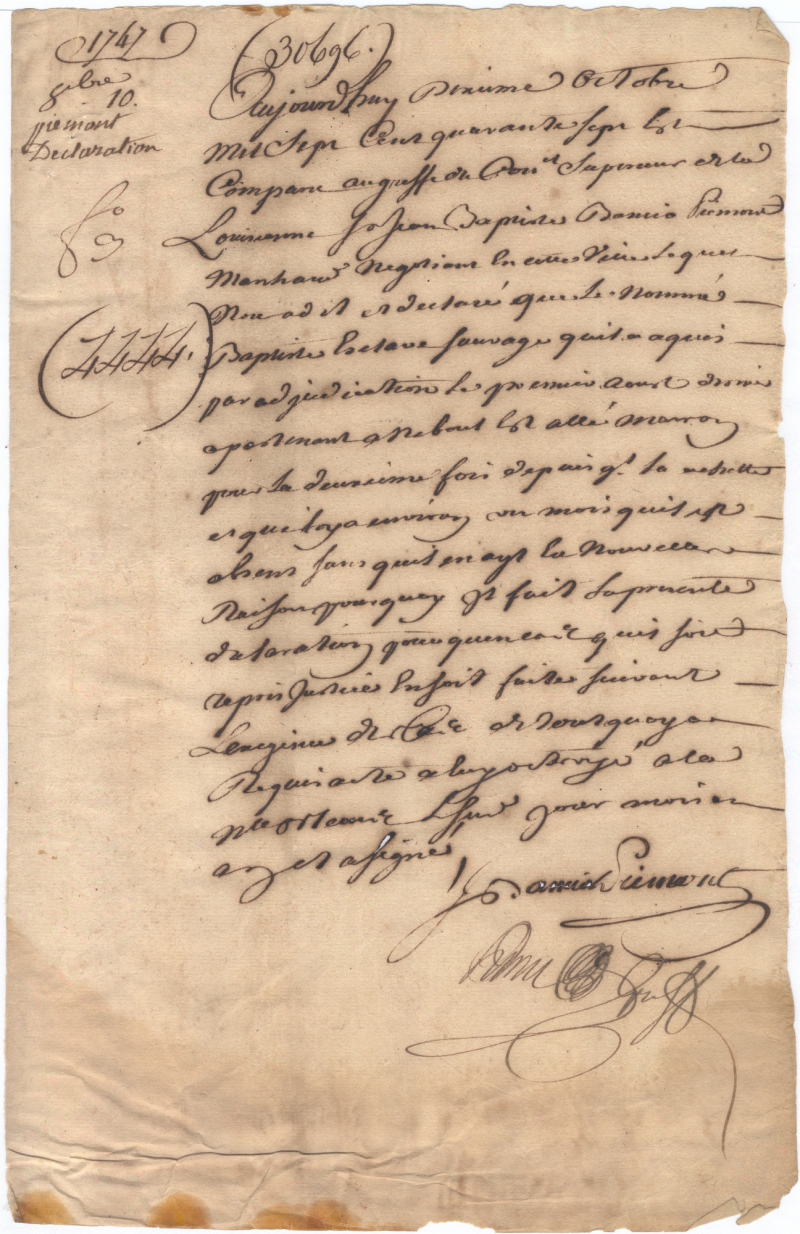 1747
8bre
10.
piemont
Declaration
fo
3
(4444.)
(30696.)
Aujourdhuy Dixieme Octobre
Mil Sept Cent quarante Sept Est
Comparu au greffe du Con.el Superieur de la
Louisianne Jean Baptiste Piemont
Marchand Negotiant En cette Ville Lequel
Nous a dit et declaré que le Nommé
Baptiste Esclave Sauvage quil a aquis
par adjudication le premier Aoust dernier
apartenant a Rebout Est allé Marron
pour la deuxieme fois depuis q.l la achetté
et quil y a environ un mois quil est
absent sans quil en ayt Eu Nouvelle
Raison pourquoy Il fait la presente
declaration pour quen cas quil soit
repris Justice En soit faite suivant
Lexigence du Cas de tout quoy a
Requis acte a luy octroyé a la
N.lle Orleans Les jour mois et
an et a signé
Piemont
greff